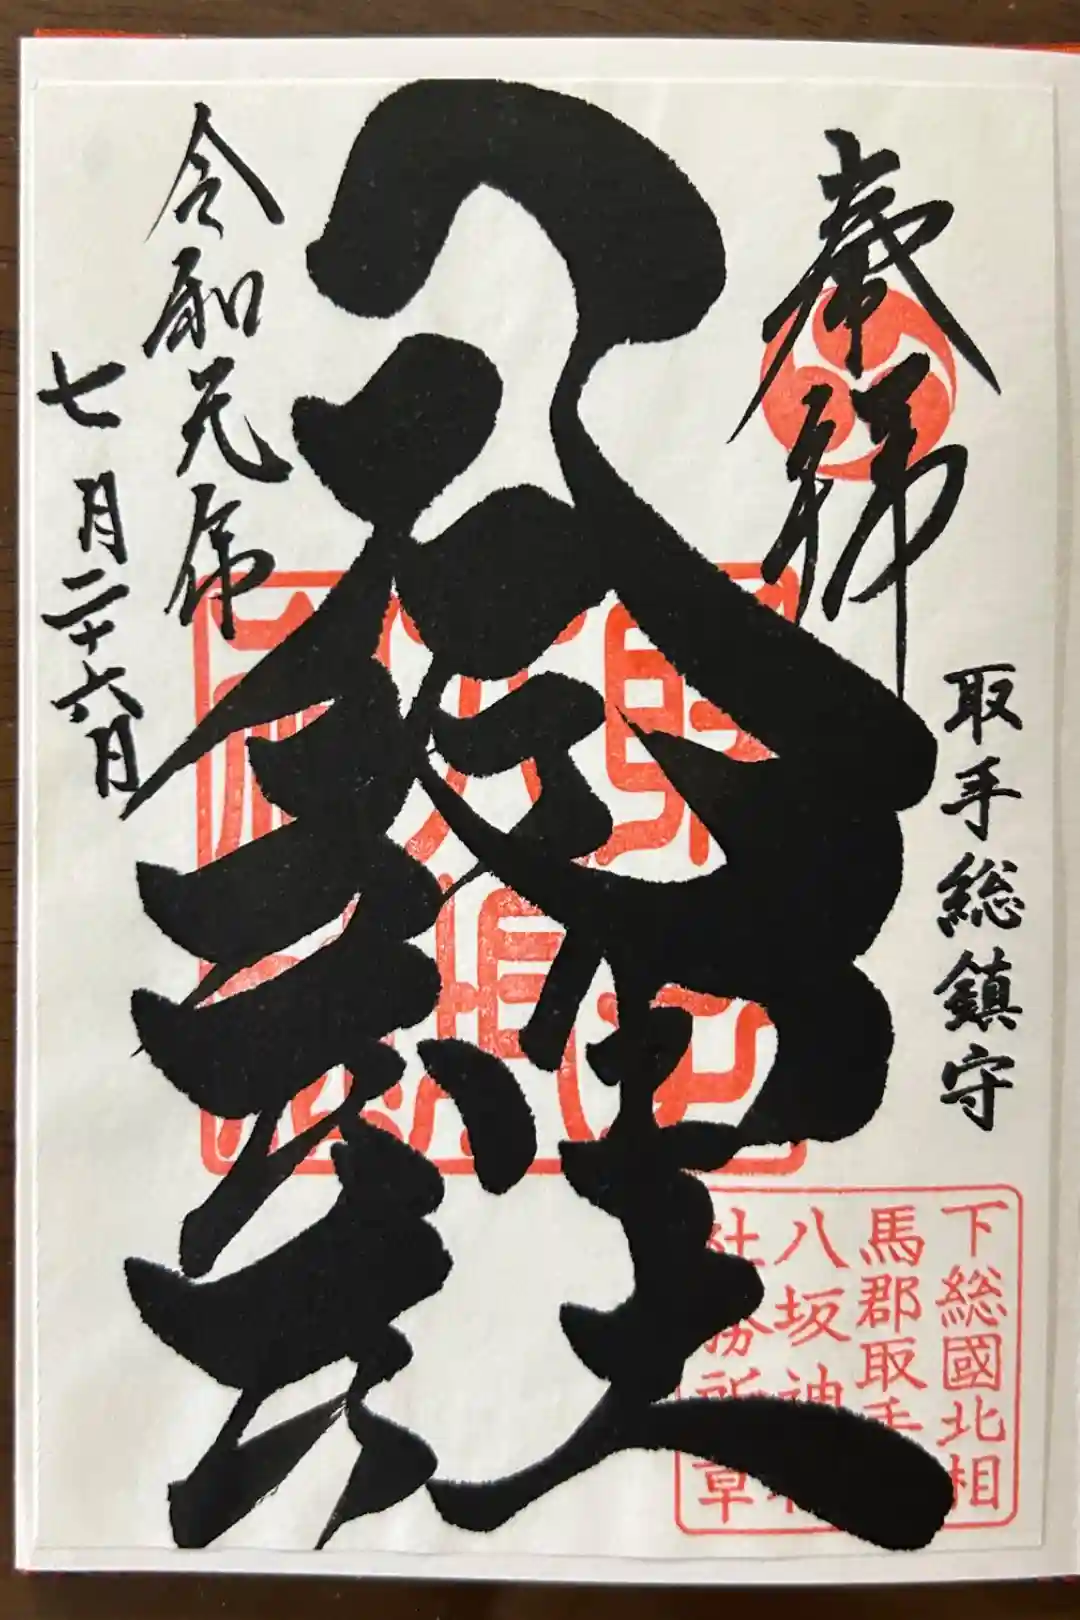 奉拝
取手総鎮守
八坂神社
令和元年
七月二十六日
下総國北相
馬郡取手
八坂神
社務所章